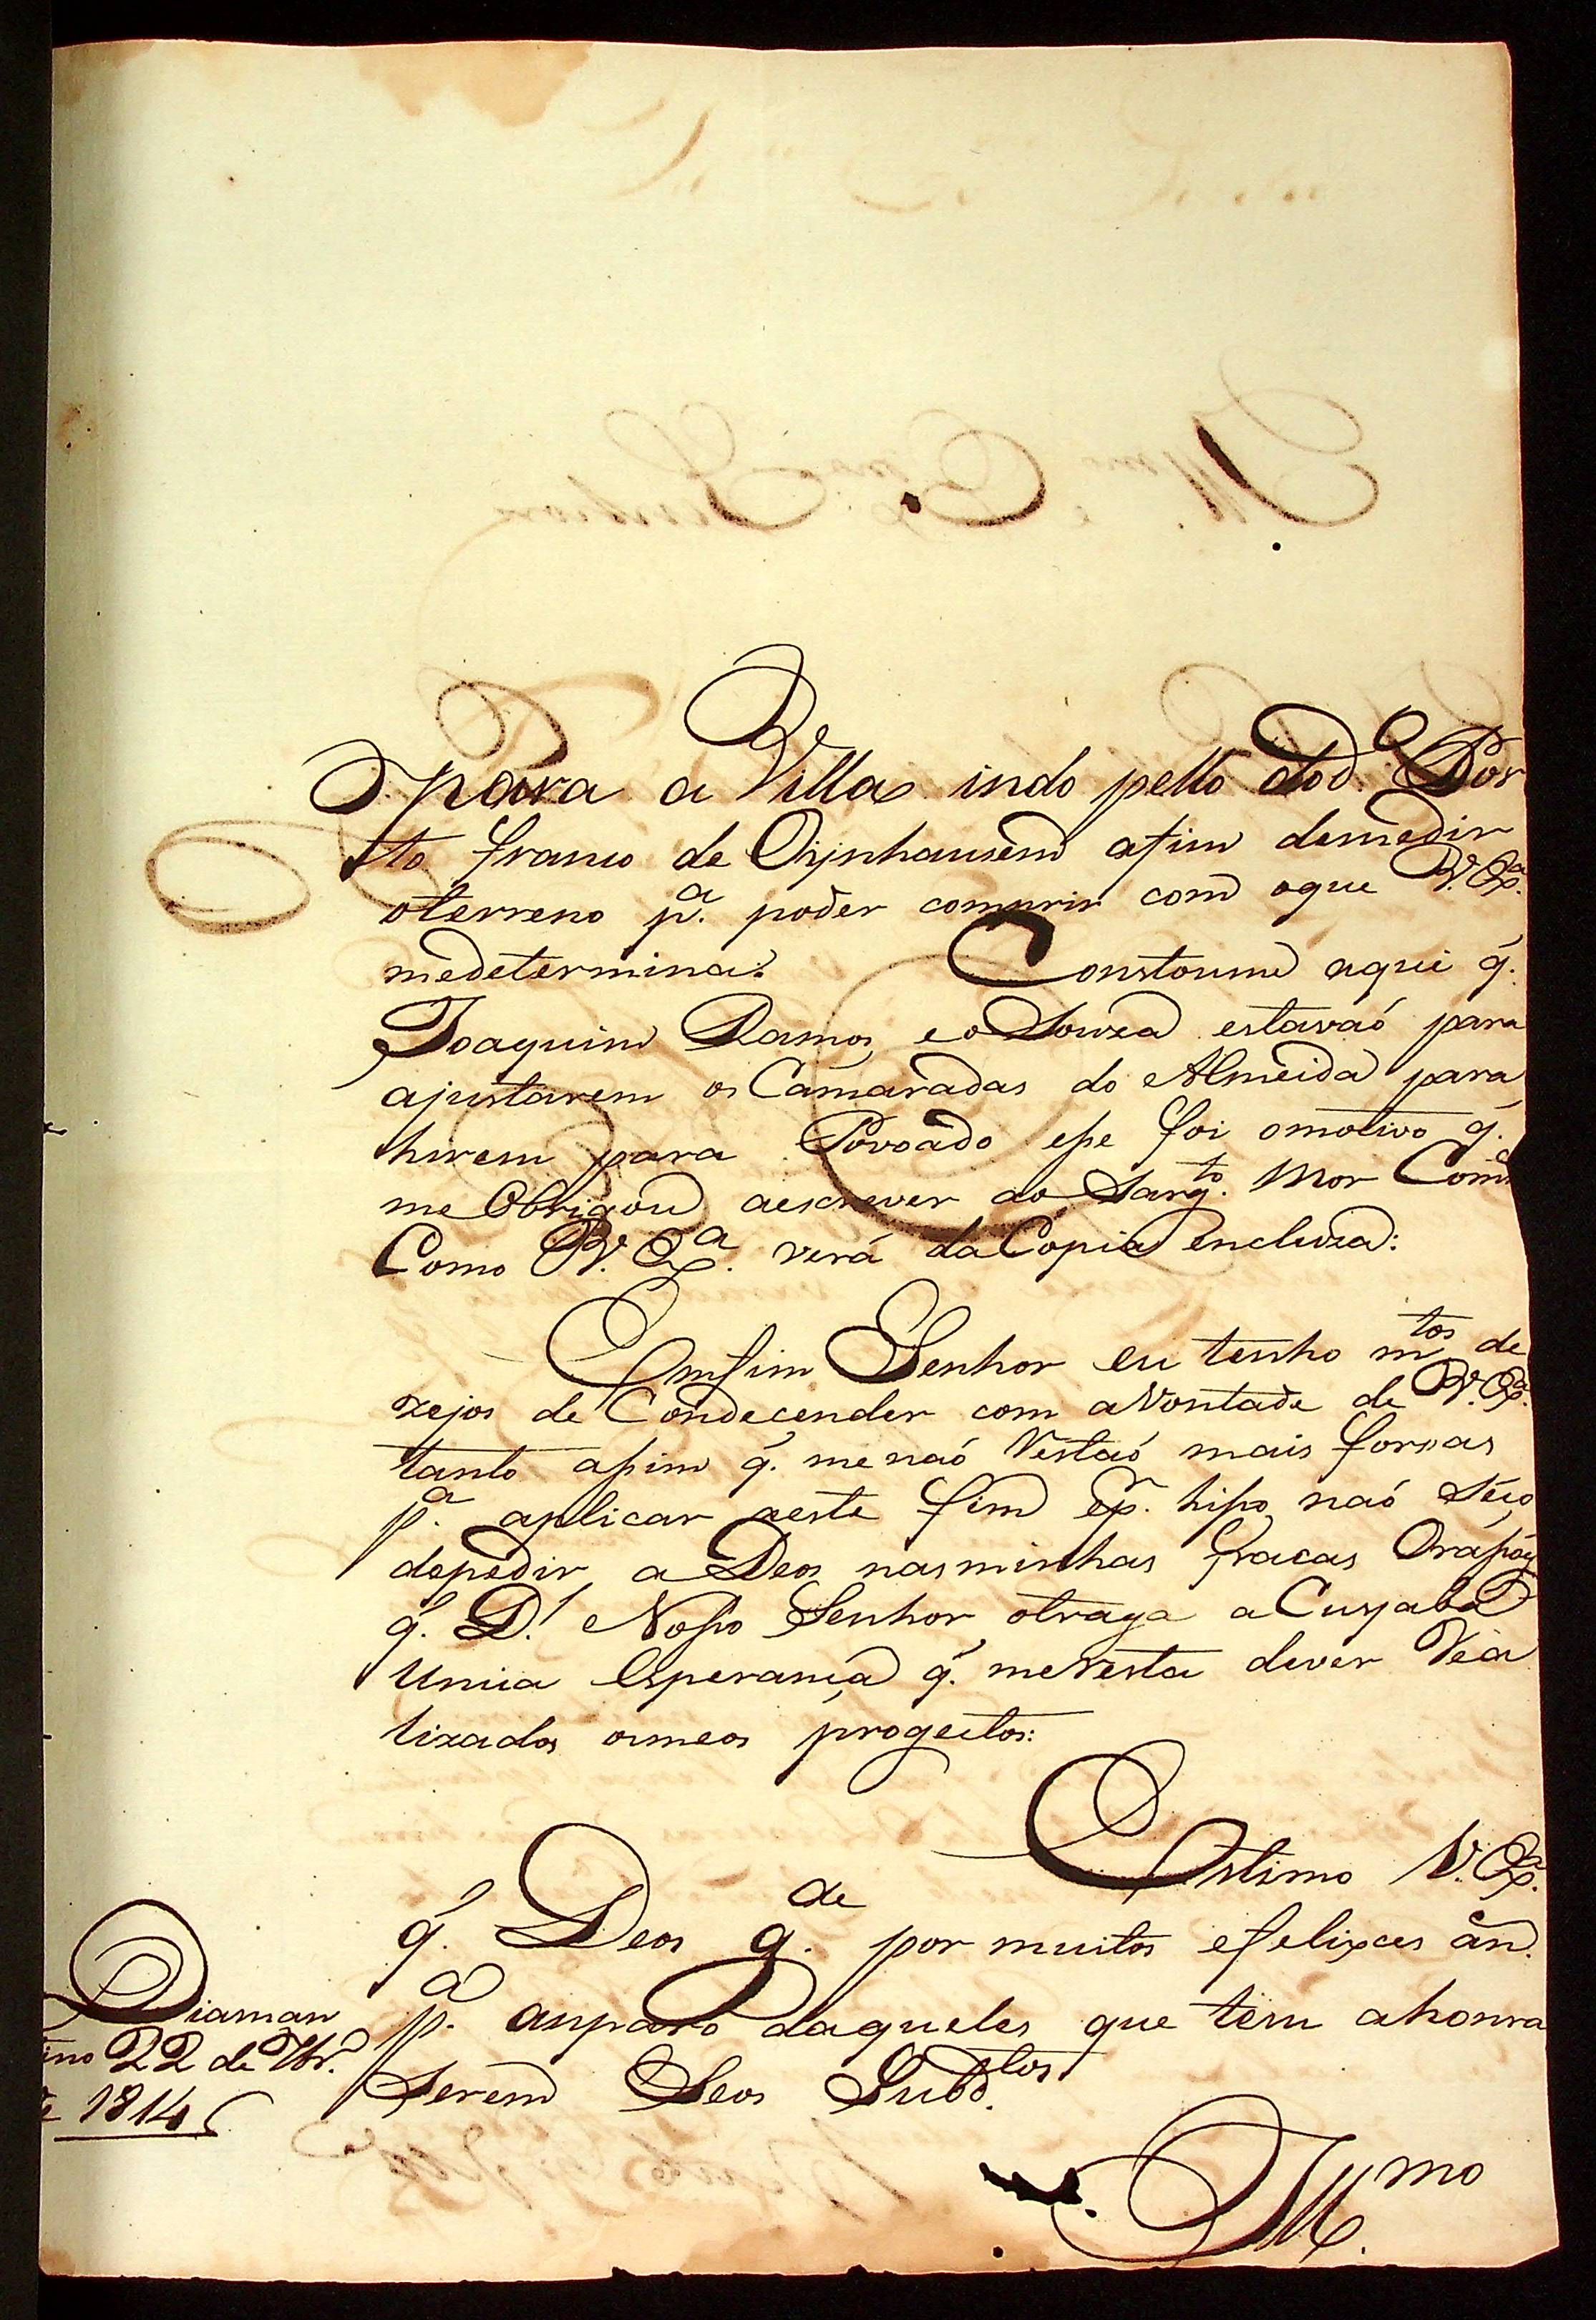 para a Villa indo pello do d.º Por
to franco de Oÿnhausend afim demedir
oterreno p.ª poder comprir com oque V. Ex.ª
medetermina: Constoume aqui q.
Joaquim Ramos, eo Souza estavaó para
ajustarem os Camaradas do Almeida para
hirem para Povoado esse foi omotivo q.
me Obrigou aescrever ao Sarg.to Mor Com.e
Como V. Ex.ª verá da Copia encluza:
Emfim Senhor eu tenho m.tos de
zejos de Condecender com aVontade de V. Ex.ª
tanto assim q. me naó Restaó mais forsas
p.ª aplicar aeste fim e p.r hisso naó séço
depedir a Deos nasminhas fracas Orasoỹ
q. D.s Nosso Senhor otraga a Cuyabá
Unica Esperança q. meresta dever Rea
lizados osmeos progectos:
Estimo V. Ex.ª
q. Deos g.de por muitos efelizces an.
p.ª anparo daqueles que tem ahonra
Serem Seos Subd.tos
Diaman
tino 22 de 7br.º
de 1814
Ill.mo